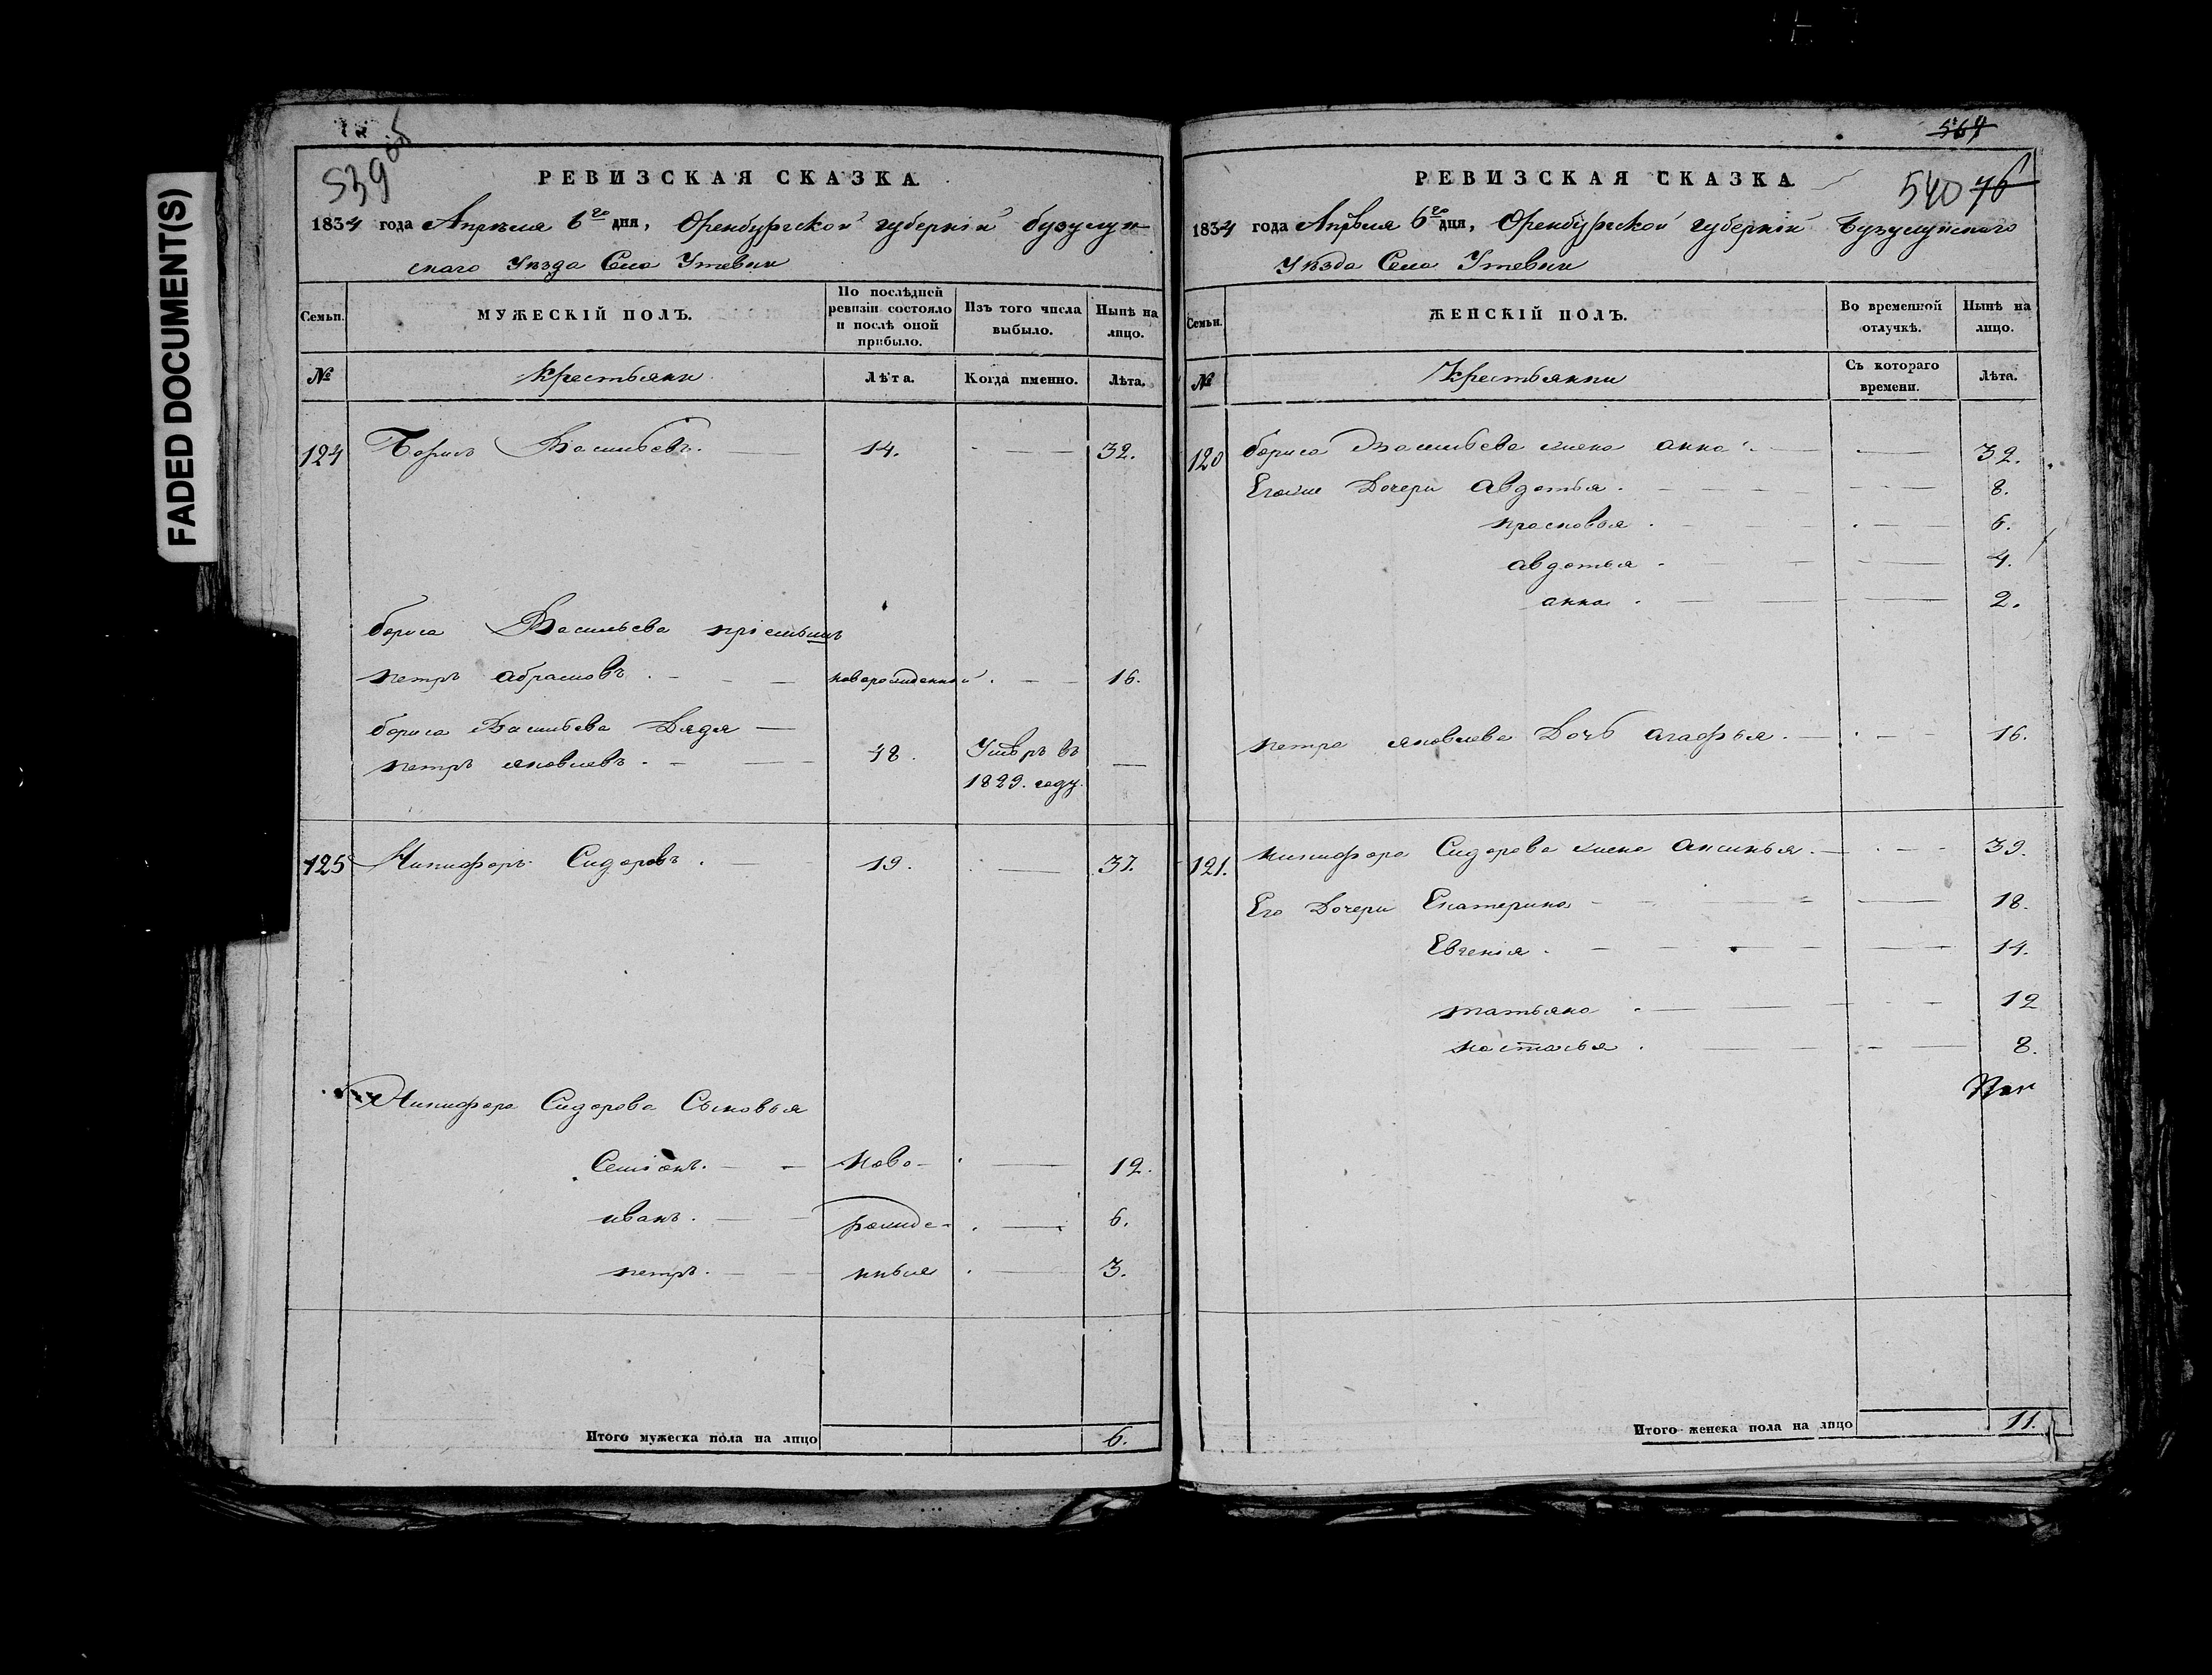 FADED DOCUMENT(S)
539 об
РЕВИЗСКАЯ СКАЗКА
1834 года Апреля 6го дня, Оренбургской губерніи бузулук
скаго Уѣзда Села Утевки
Семьи.
МУЖЕСКІЙ ПОЛЪ.
По послѣдней ревизіи состояло и послѣ оной прибыло.
Изъ того числа выбыло.
Нынѣ на лицо.
№
Крестьяни
Лѣта.
Когда именно.
Лѣта.
124 Борисъ Васильевъ. 14. 32.
бориса Васильева пріемышъ
петръ абрамовъ. новорожденной. 16.
бориса Васильева Дядя
петръ яковлевъ. 48. Умѣръ въ
1829. году.
125 Никифоръ Сидоровъ. 19. 37.
Никифора Сидорова Сыновья
Семіонъ. ново- 12.
иванъ. рожде- 6.
петръ. нныя 3.
Итого мужеска пола на лицо 6.
564
540 76
РЕВИЗСКАЯ СКАЗКА
1834 года Апрѣля 6го дня, Оренбургской губерніи Бузулукскаго
Уѣзда Села Утевки
Семьи.
ЖЕНСКІЙ ПОЛЪ.
Во временной отлучкѣ.
Нынѣ на лицо.
№
Крестьянки
Съ котораго времени.
Лѣта.
120 бориса Васильева жена анна. 32.
Егоже Дочери авдотья. 8.
прасковья. 6.
авдотья. 4.
анна. 2.
петра яковлева Дочь агафья. 16.
121. никифора Сидорова жена аксинья. 39.
Его Дочери Екатерина 18.
Евгенія. 14.
татьяна 12
настасья. 8.
Итого женска пола на лицо 11.